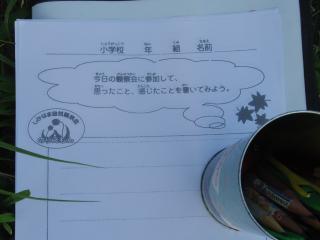 小学校 年 組 名前
今日の観察会に参加して、
思ったこと、感じたことを書いてみよう。